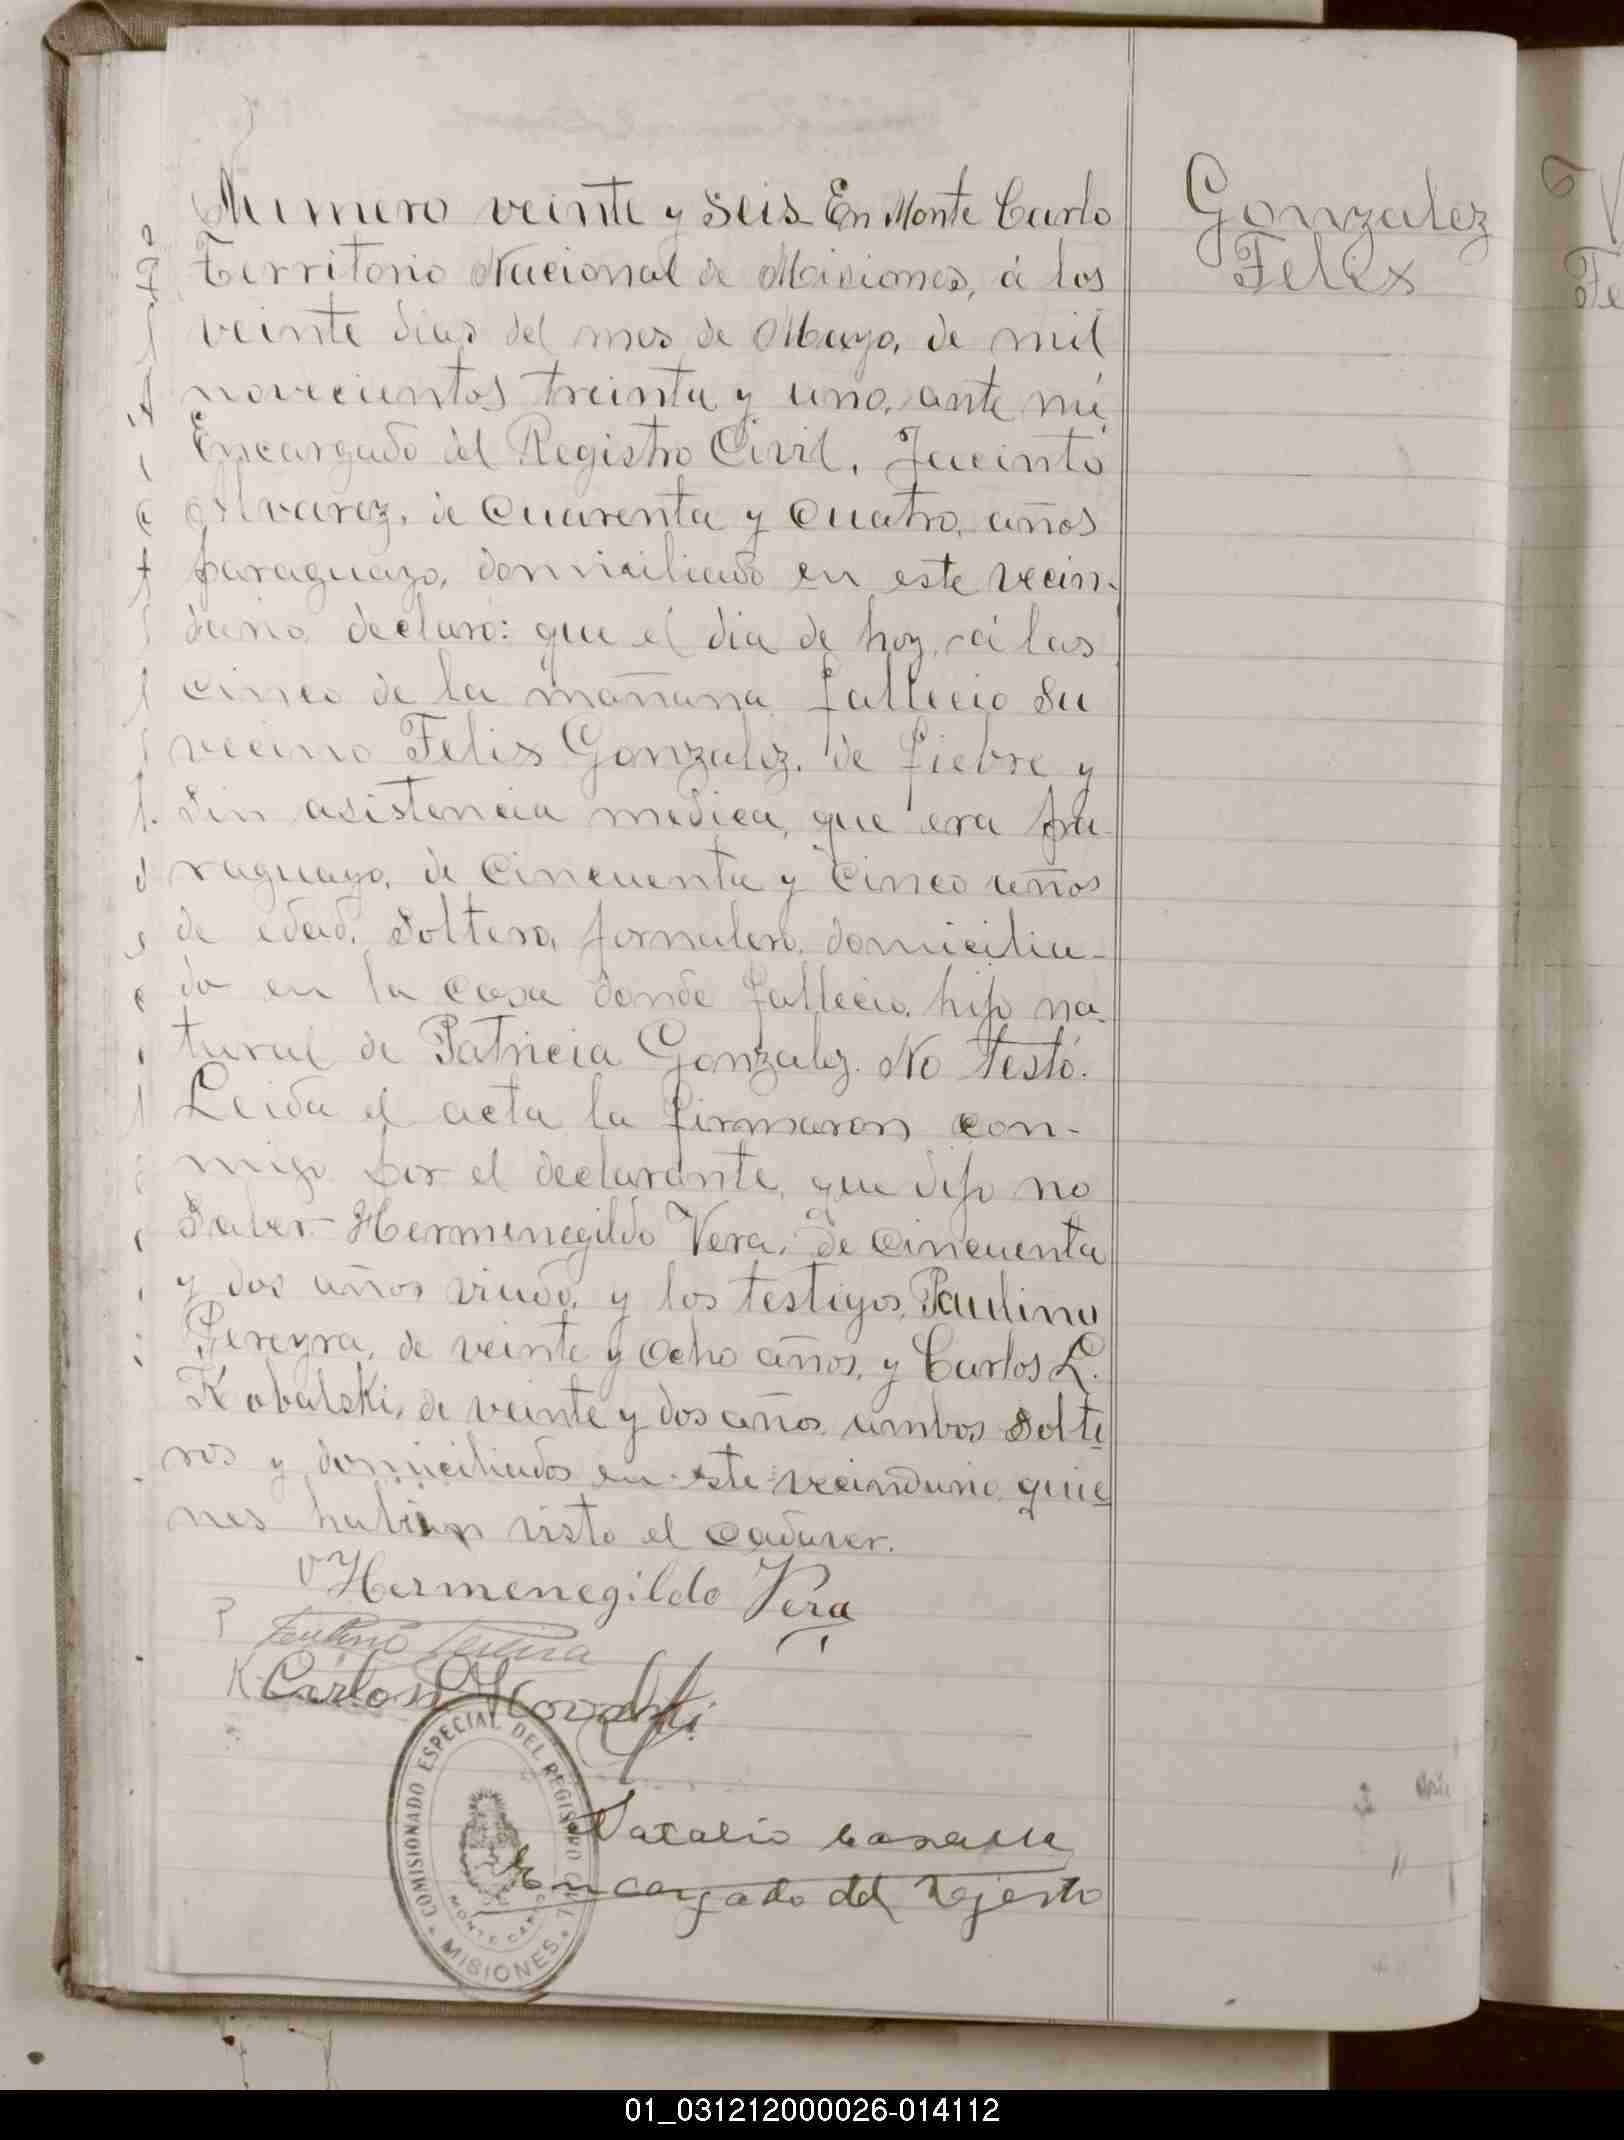 Numero veinte y seis En Monte Carlo
Territorio Nacional de Misiones, á los
veinte dias del mes de Mayo, de mil
novecientos treinta y uno, ante mi,
Encargado del Registro Civil, Jacinto
Alvarez, de cuarenta y cuatro, años
paraguayo, domiciliado en este vecin-
dario, declaró: que el dia de hoy, á las
cinco de la mañana fallecio su
vecino Felis Gonzalez, de fiebre y
sin asistencia medica, que era pa-
raguayo, de cincuenta y cinco años
de edad, soltero, jornalero, domicilia-
do en la casa donde fallecio, hijo na-
tural de Patricia Gonzalez. No testó.
Leida el acta la firmaron con-
migo por el declarante, que dijo no
saber Hermenegildo Vera, de cincuenta
y dos años viudo, y los testigos, Paulino
Pereyra, de veinte y ocho años, y Carlos L.
Kobalski, de veinte y dos años, ambos solte
ros y domiciliados en este vecindario, quie
nes habian visto el cadaver.
Hermenegildo Vera
Carlos
Encargado del
COMISIONADO ESPECIAL DEL REGISTRO CIVIL
MONTE CARLO
MISIONES
Gonzalez
Felix
01_031212000026-014112